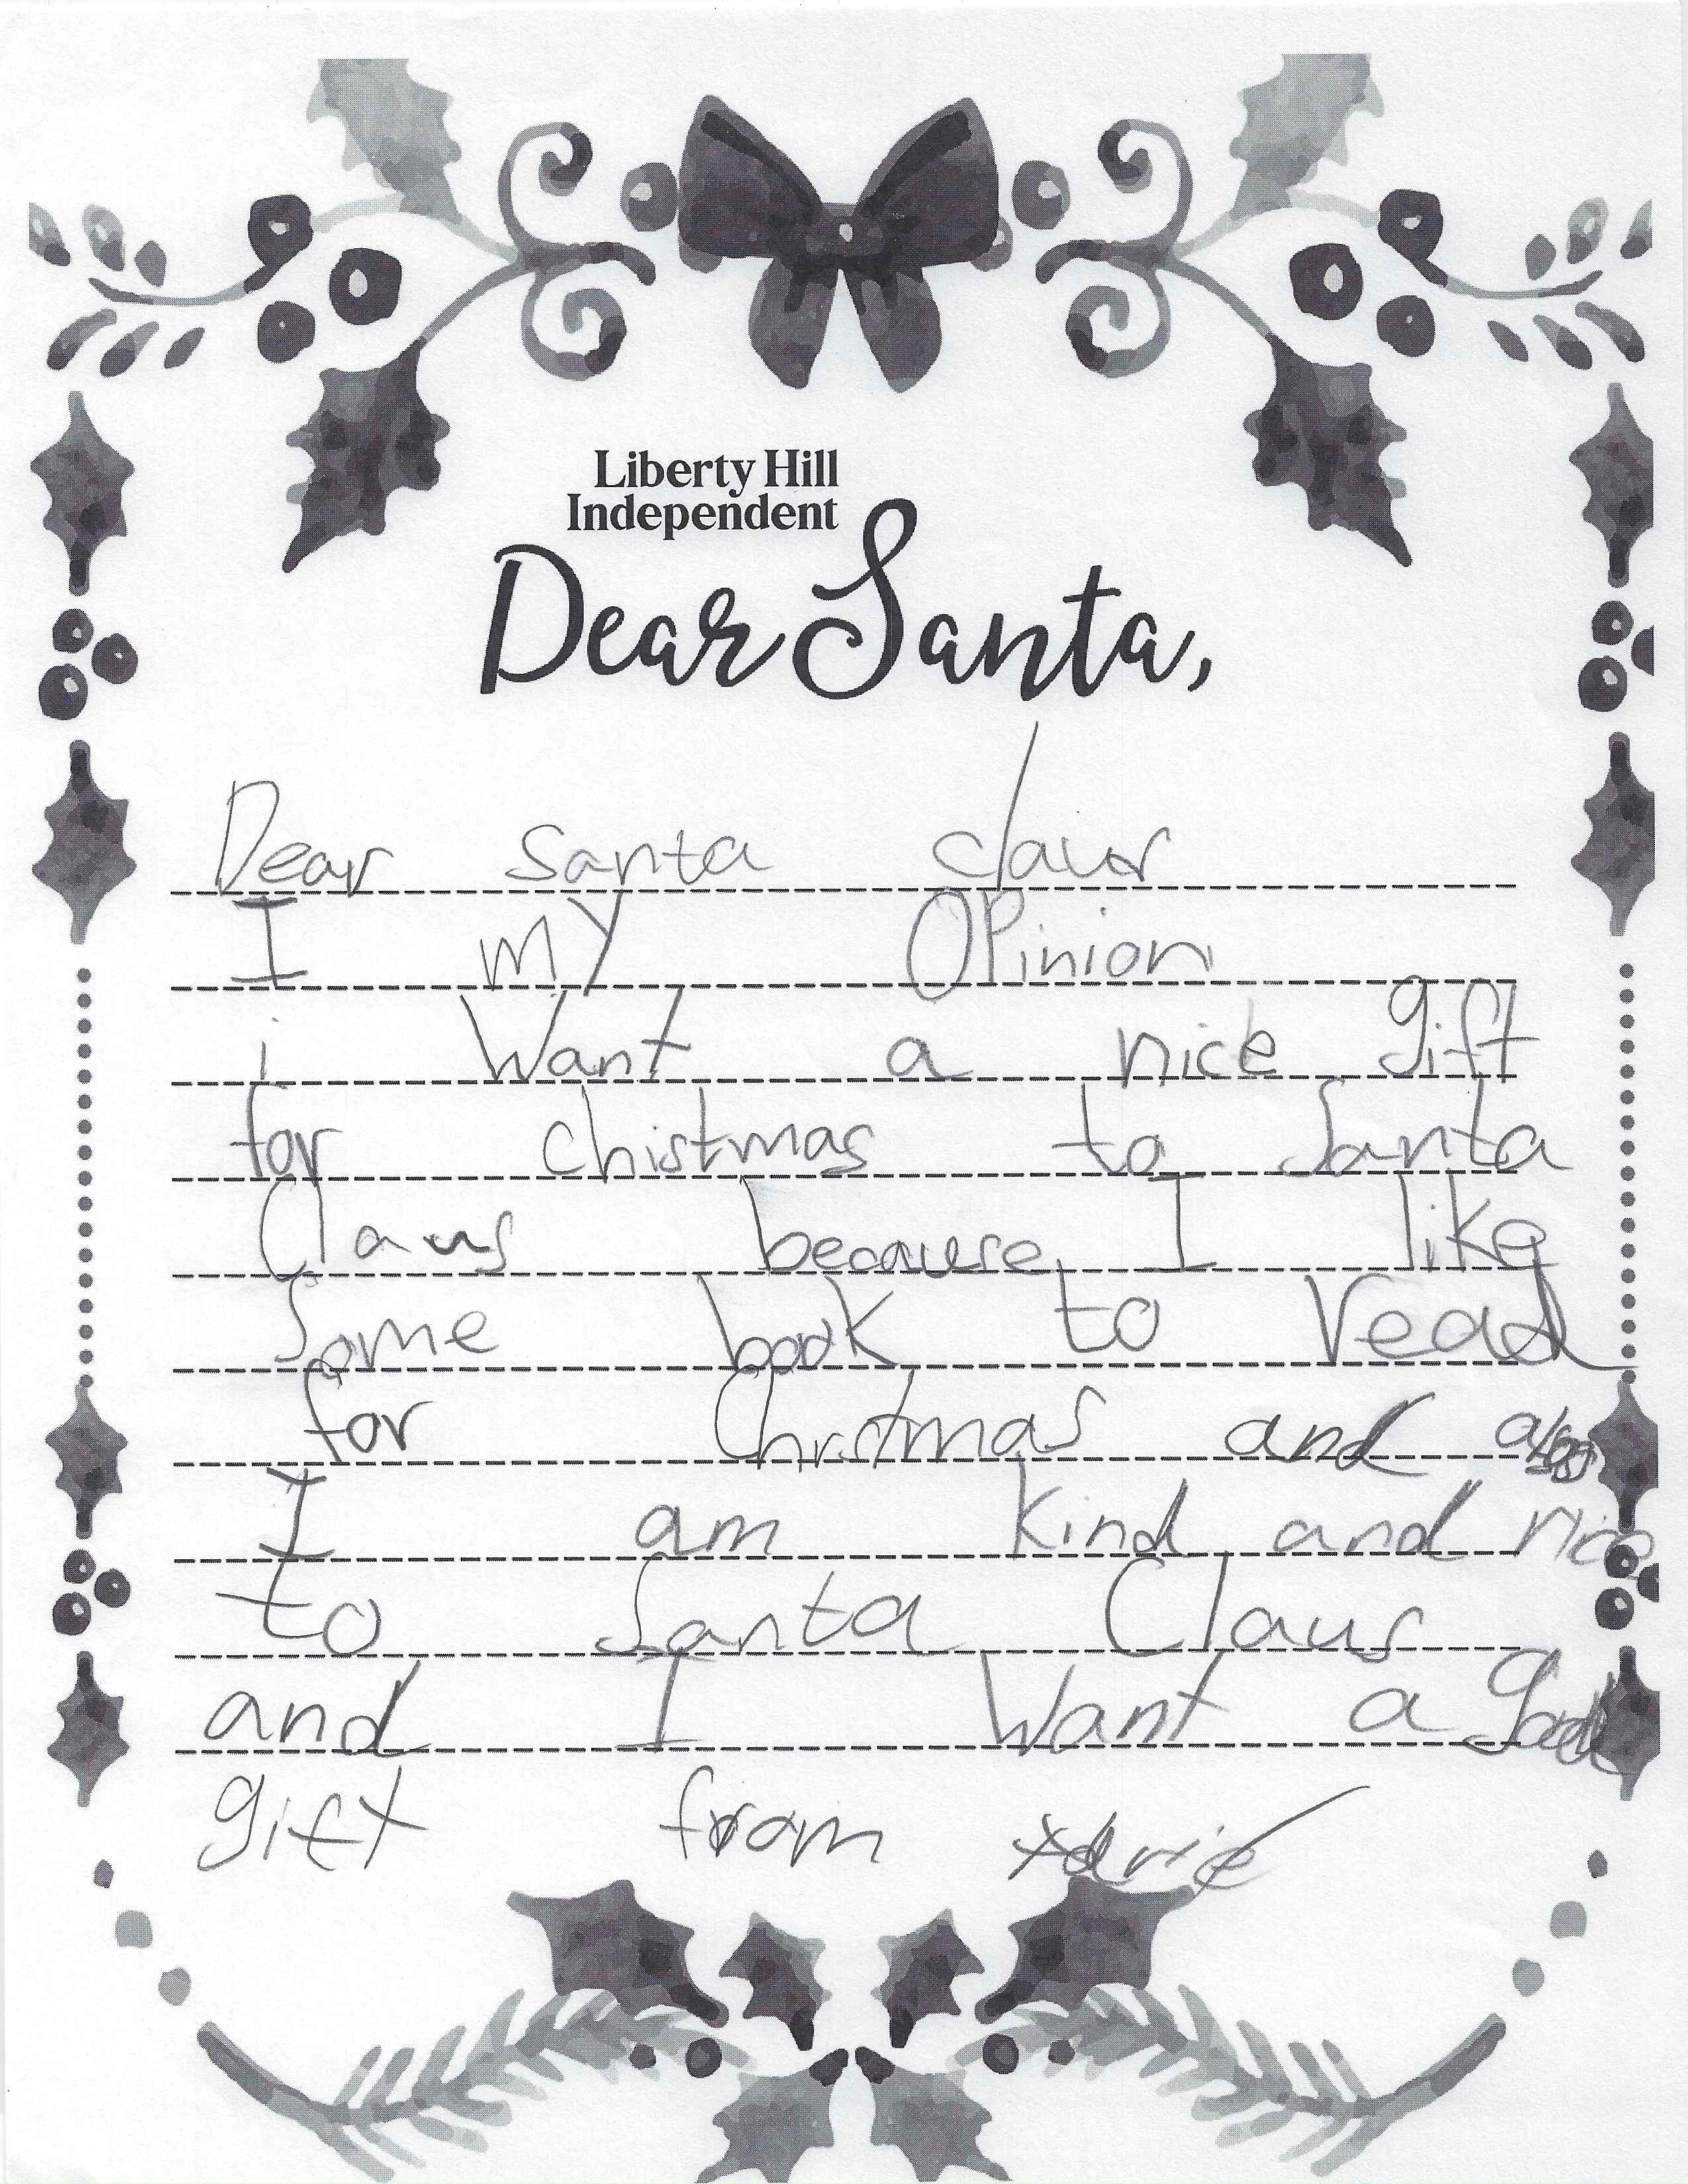 Liberty Hill
Independent
Dear Santa,
Dear Santa claus
I my OPinion
i Want a nice gift
for chistmas to Santa
Claus because I like
Some book to read
for Chrstmas and also
I am kind and nice
to Santa Claus
and I Want a good
gift from